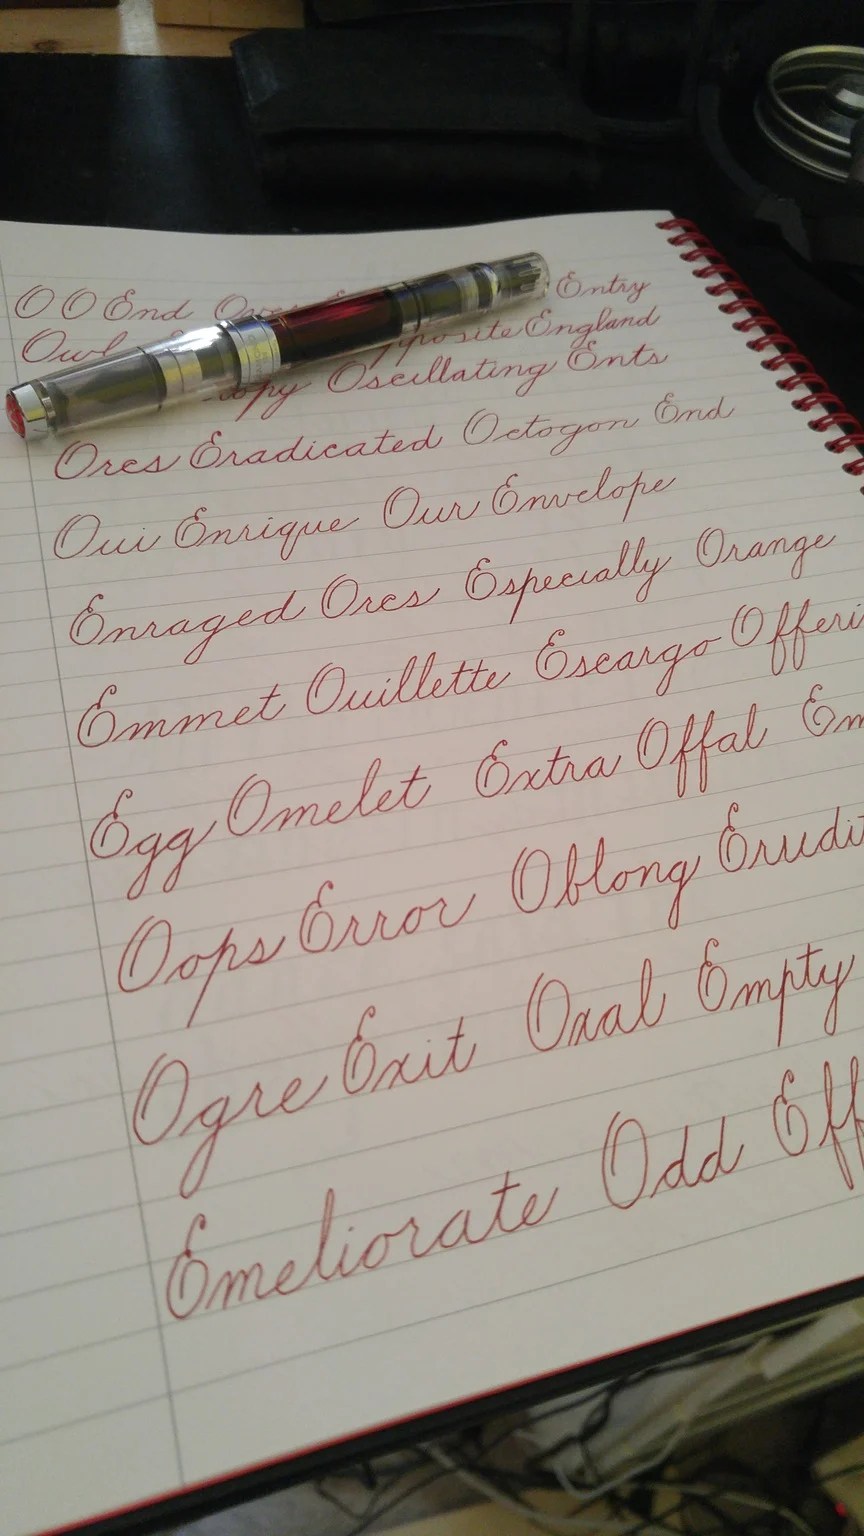 O O End Over Entry
Owl Opposite England
Oscillating Ents
Orcs Eradicated Octogon End
Oui Enrique Our Envelope
Enraged Orcs Especially Orange
Emmet Ouillette Escargo Offeri
Egg Omelet Extra Offal Em
Oops Error Oblong Erudit
Ogre Exit Oxal Empty
Emeliorate Odd Eff